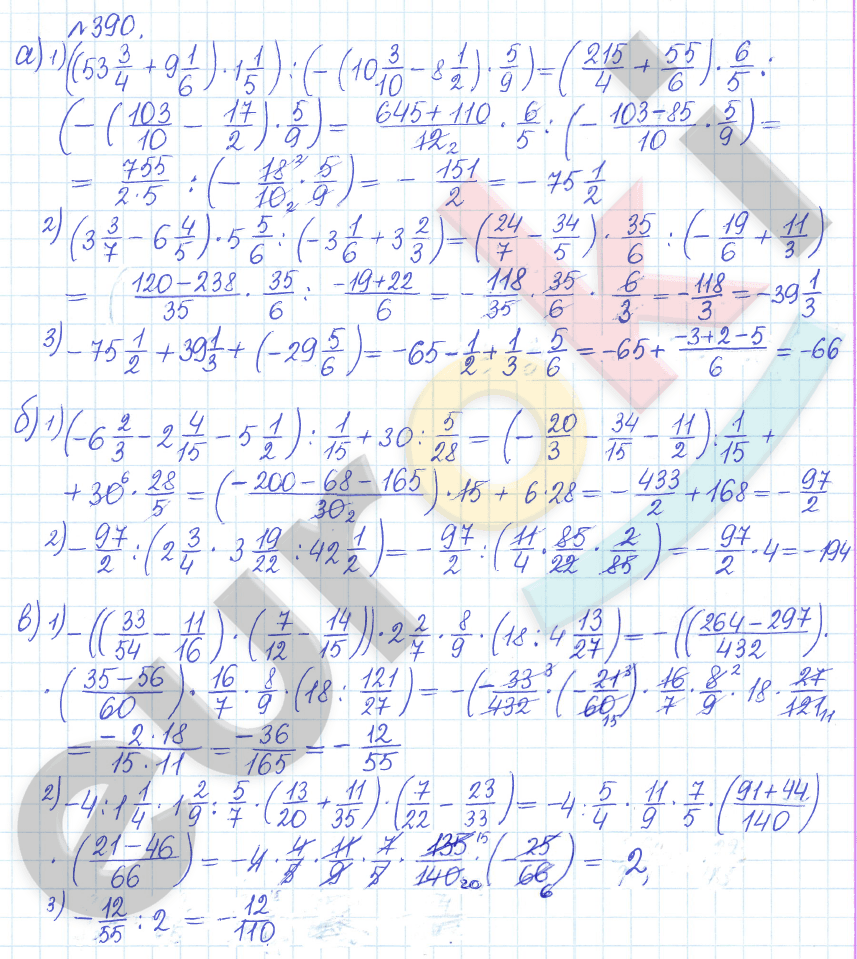 №390.
а) 1) ((53 3/4 + 9 1/6) · 1 1/5) : (-(10 3/10 - 8 1/2) · 5/9) = (215/4 + 55/6) · 6/5 :
(-(103/10 - 17/2) · 5/9) = 645+110/12₂ · 6/5 : (- 103-85/10 · 5/9) =
= 755/2·5 : (- 18²/10₂ · 5/9) = - 151/2 = -75 1/2
2) (3 3/7 - 6 4/5) · 5 5/6 : (-3 1/6 + 3 2/3) = (24/7 - 34/5) · 35/6 : (- 19/6 + 11/3)
= 120-238/35 · 35/6 : -19+22/6 = - 118/35 · 35/6 · 6/3 = - 118/3 = -39 1/3
3) -75 1/2 + 39 1/3 + (-29 5/6) = -65 - 1/2 + 1/3 - 5/6 = -65 + -3+2-5/6 = -66
б) 1) (-6 2/3 - 2 4/15 - 5 1/2) : 1/15 + 30 : 5/28 = (- 20/3 - 34/15 - 11/2) : 1/15 +
+ 30⁶ · 28/5 = (-200-68-165/30₂) · 15 + 6·28 = - 433/2 + 168 = - 97/2
2) - 97/2 : (2 3/4 · 3 19/22 : 42 1/2) = - 97/2 : (11/4 · 85/22 · 2/85) = - 97/2 · 4 = -194
в) 1) -((33/54 - 11/16) · (7/12 - 14/15)) · 2 2/7 · 8/9 · (18 : 4 13/27) = -((264-297/432) ·
· (35-56/60) · 16/7 · 8/9 · (18 : 121/27) = -(-33³/432 · (-21³/60₁₅) · 16/7 · 8²/9 · 18 · 27/121₁₁
= -2·18/15·11 = -36/165 = - 12/55
2) -4 : 1 1/4 · 1 2/9 : 5/7 · (13/20 + 11/35) · (7/22 - 23/33) = -4 : 5/4 · 11/9 · 7/5 · (91+44/140)
· (21-46/66) = -4 · 4/5 · 11/9 · 7/5 · 135¹⁵/140₂₀ · (- 25/66₆) = 2,
3) - 12/55 : 2 = - 12/110
euroki